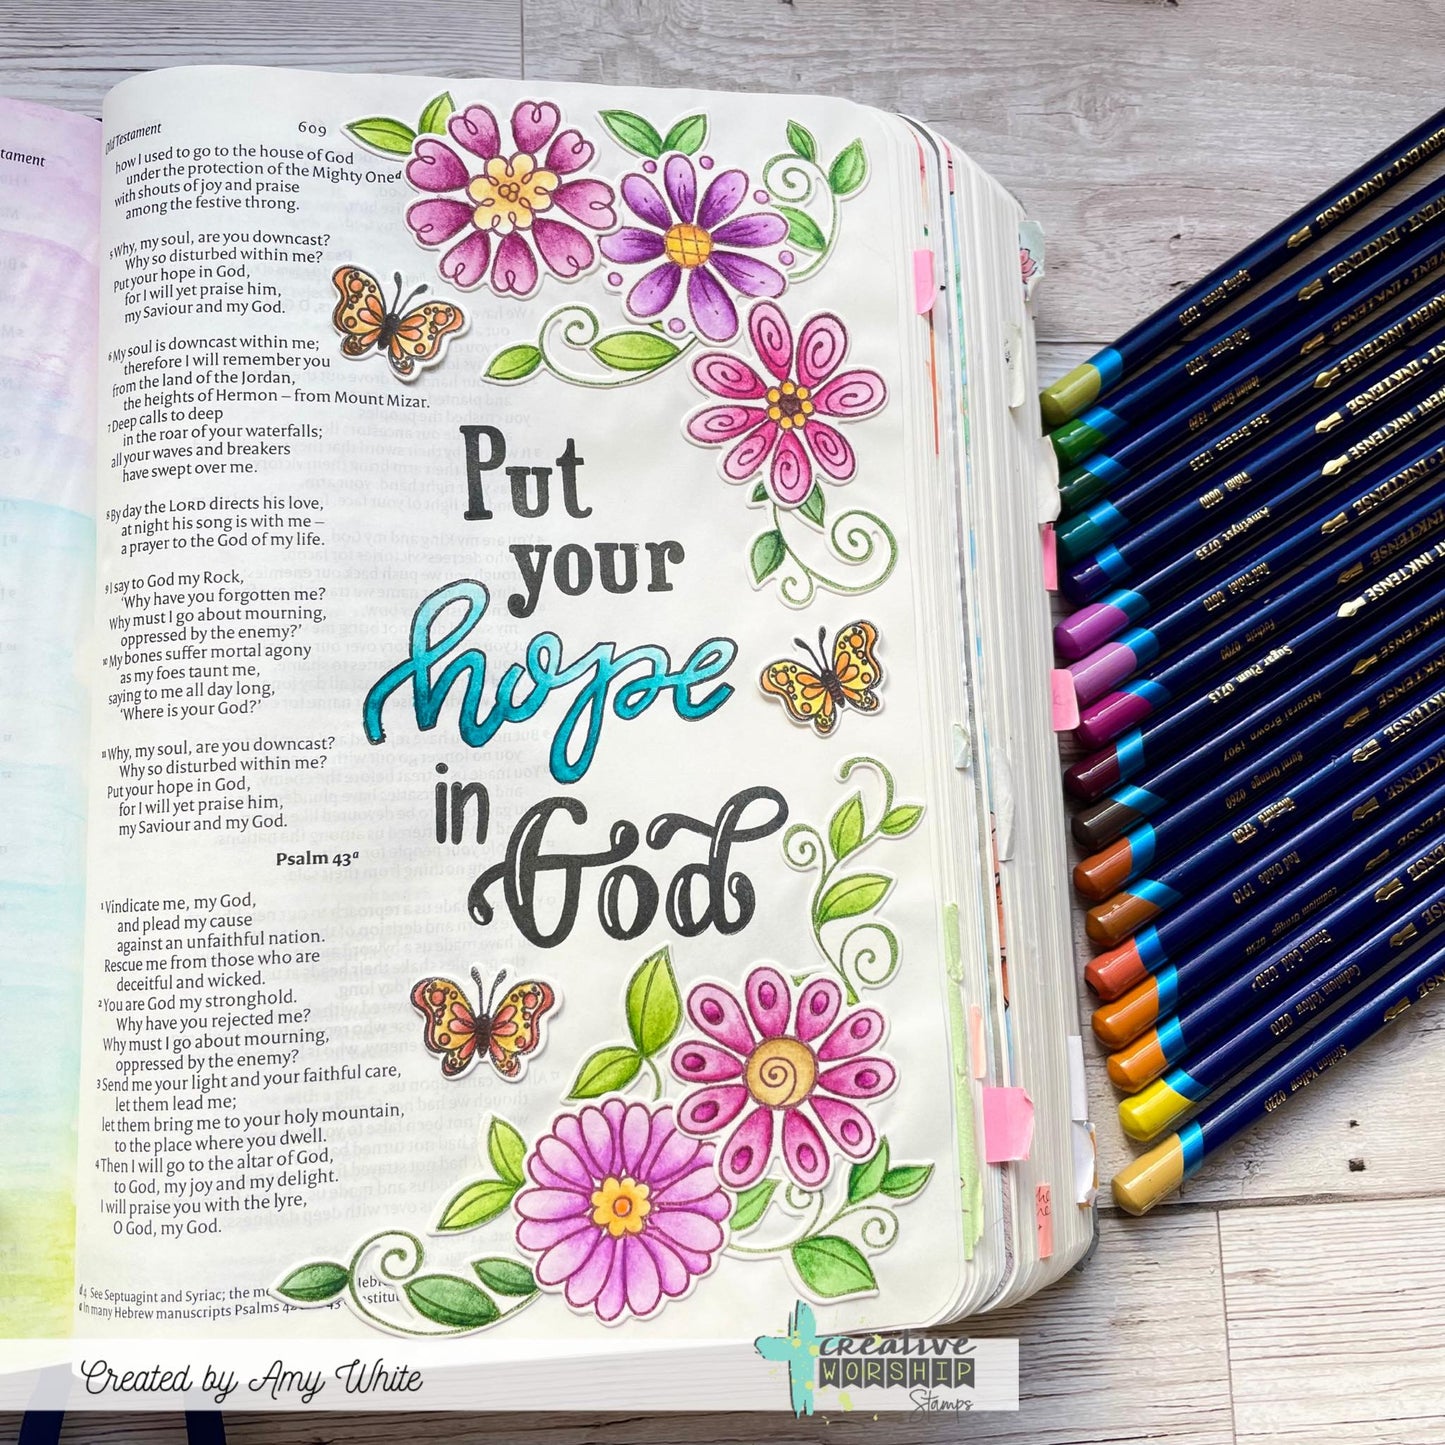 tament
Old Testament
609
how I used to go to the house of God
under the protection of the Mighty Oneᵈ
with shouts of joy and praise
among the festive throng.
⁵Why, my soul, are you downcast?
Why so disturbed within me?
Put your hope in God,
for I will yet praise him,
my Saviour and my God.
⁶My soul is downcast within me;
therefore I will remember you
from the land of the Jordan,
the heights of Hermon – from Mount Mizar.
⁷Deep calls to deep
in the roar of your waterfalls;
all your waves and breakers
have swept over me.
⁸By day the LORD directs his love,
at night his song is with me –
a prayer to the God of my life.
⁹I say to God my Rock,
‘Why have you forgotten me?
Why must I go about mourning,
oppressed by the enemy?’
¹⁰My bones suffer mortal agony
as my foes taunt me,
saying to me all day long,
‘Where is your God?’
¹¹Why, my soul, are you downcast?
Why so disturbed within me?
Put your hope in God,
for I will yet praise him,
my Saviour and my God.
Psalm 43ᵃ
¹Vindicate me, my God,
and plead my cause
against an unfaithful nation.
Rescue me from those who are
deceitful and wicked.
²You are God my stronghold.
Why have you rejected me?
Why must I go about mourning,
oppressed by the enemy?
³Send me your light and your faithful care,
let them lead me;
let them bring me to your holy mountain,
to the place where you dwell.
⁴Then I will go to the altar of God,
to God, my joy and my delight.
I will praise you with the lyre,
O God, my God.
ᵈ 4 See Septuagint and Syriac; the
ᵃ In many Hebrew manuscripts Psalms
Put
your
hope
in
God
DERWENT • INKTENSE
INKTENSE
Ionian Green 1320
Sea Breeze 1215
Violet 0800
Amethyst 0735
Red Violet 0610
Fuchsia 0700
Sugar Plum 0715
Natural Brown 1907
Burnt Orange 0260
Mustard 1700
Red Oxide 1910
Cadmium Orange 0250
Sienna Gold 0240
Cadmium Yellow 0210
Sicilian Yellow 0220
Created by Amy White
creative
WORSHIP
Stamps